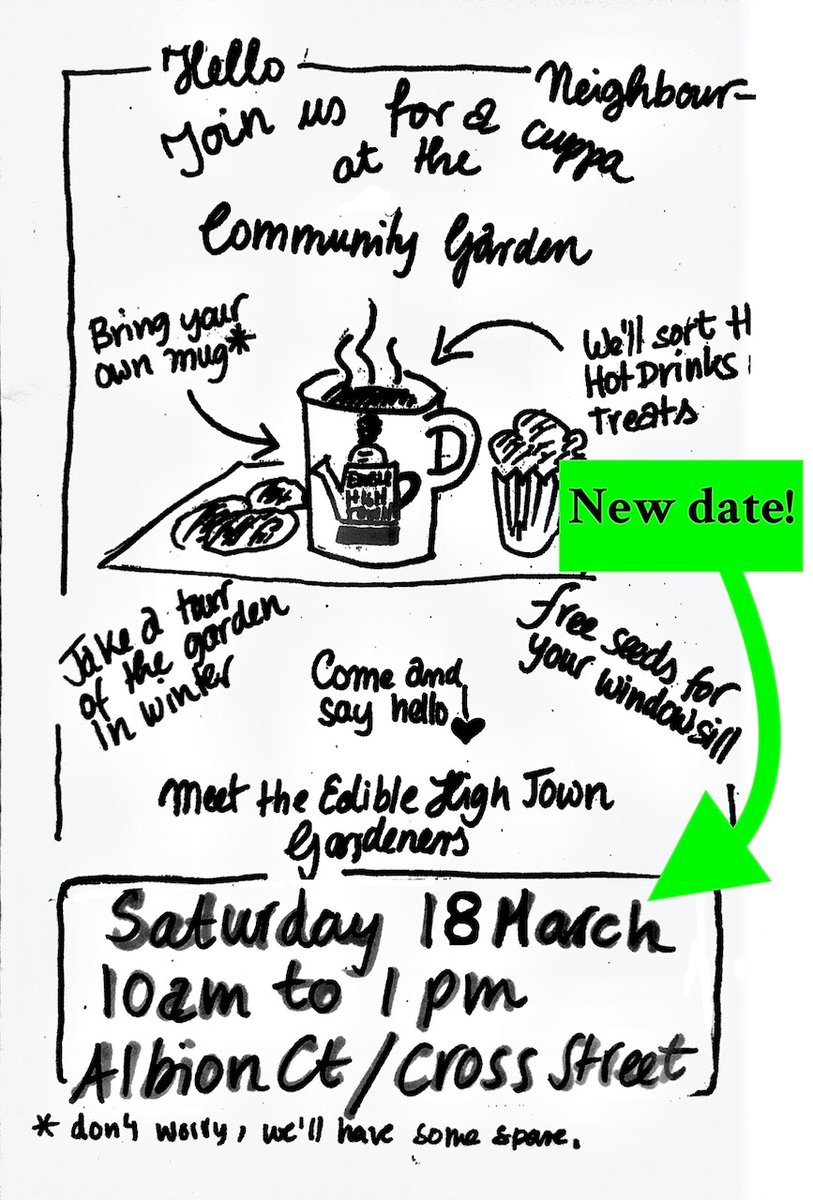 Hello Neighbour-
Join us for a cuppa
at the
Community Garden
Bring your
own mug*
We'll sort
Hot Drinks
Treats
D
EDIBLE
HIGH
New date!
Take a tour
of the garden
in winter
Come and
say hello
free seeds for
your windowsill
Meet the Edible High Town
Gardeners
Saturday 18 March
10am to 1 pm
Albion Ct / Cross Street
* don't worry, we'll have some spare.